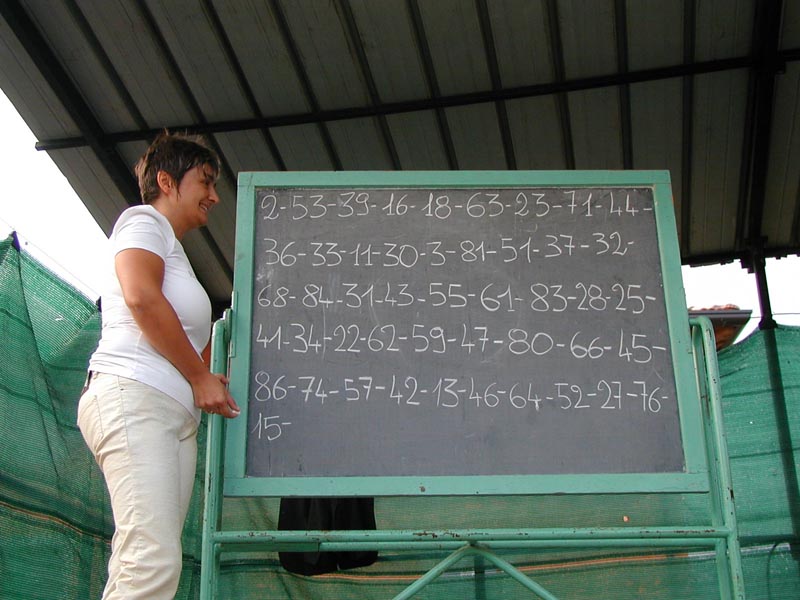 2-53-39-16-18-63-23-71-44-
36-33-11-30-3-81-51-37-32-
68-84-31-43-55-61-83-28-25-
41-34-22-62-59-47-80-66-45-
86-74-57-42-13-46-64-52-27-76-
15-